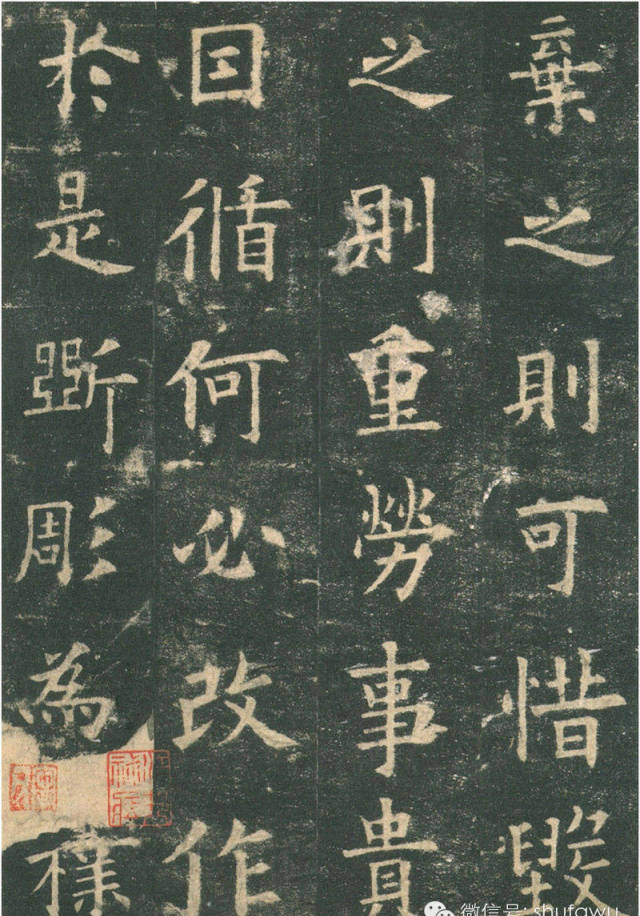 棄之則可惜毀
之則重勞事貴
因循何必改作
於是斲彫為樸
微信号: shufawu